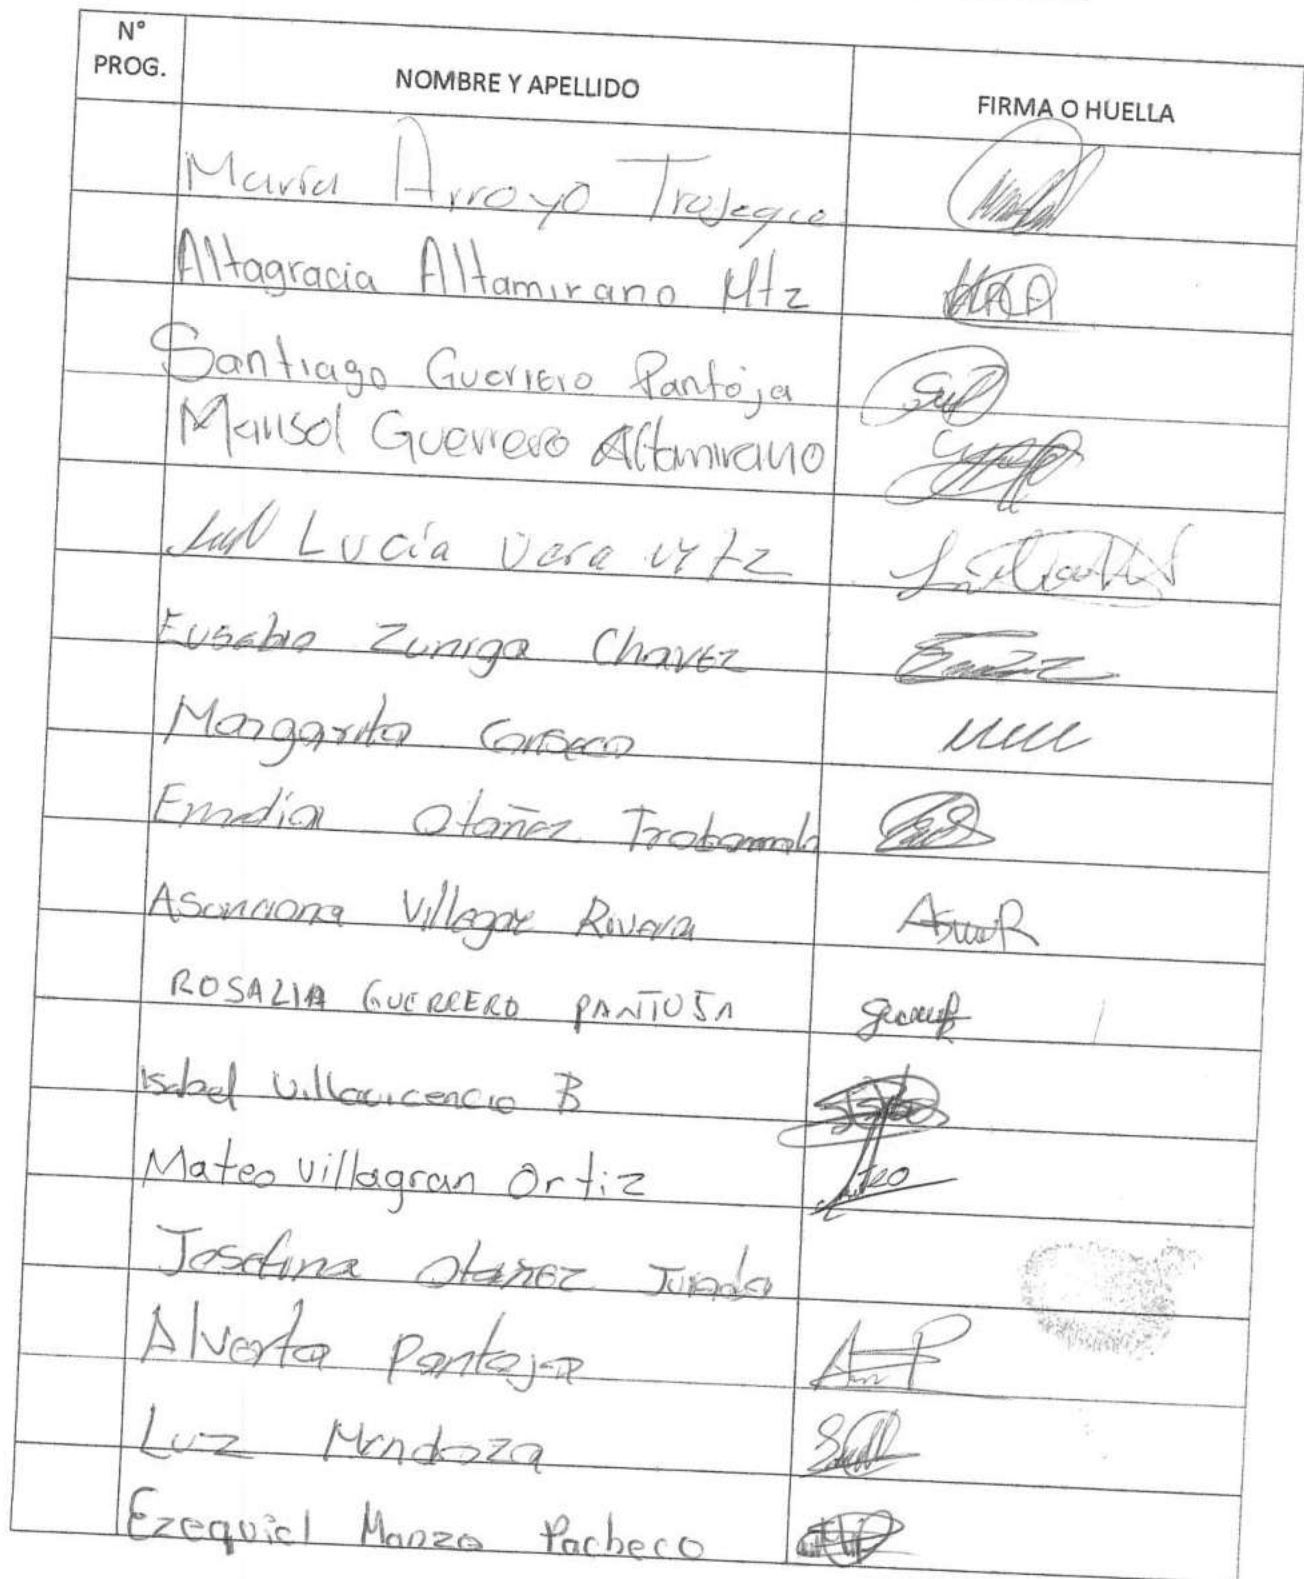 N°
PROG.
NOMBRE Y APELLIDO
FIRMA O HUELLA
María Arroyo
Altagracia Altamirano Mtz
Santiago Guerrero Pantoja
Marisol Guerrero Altamirano
Lucía Vera Mtz
Eusebio Zuniga Chavez
Margarita
Otañez
Villegas Rivera
ROSALIA GUERRERO PANTOJA
Isabel Villavicencio B
Mateo Villagran Ortiz
Josefina Otañez Jurado
Alverta Pantoja
Luz Mendoza
Ezequiel Manzo Pacheco